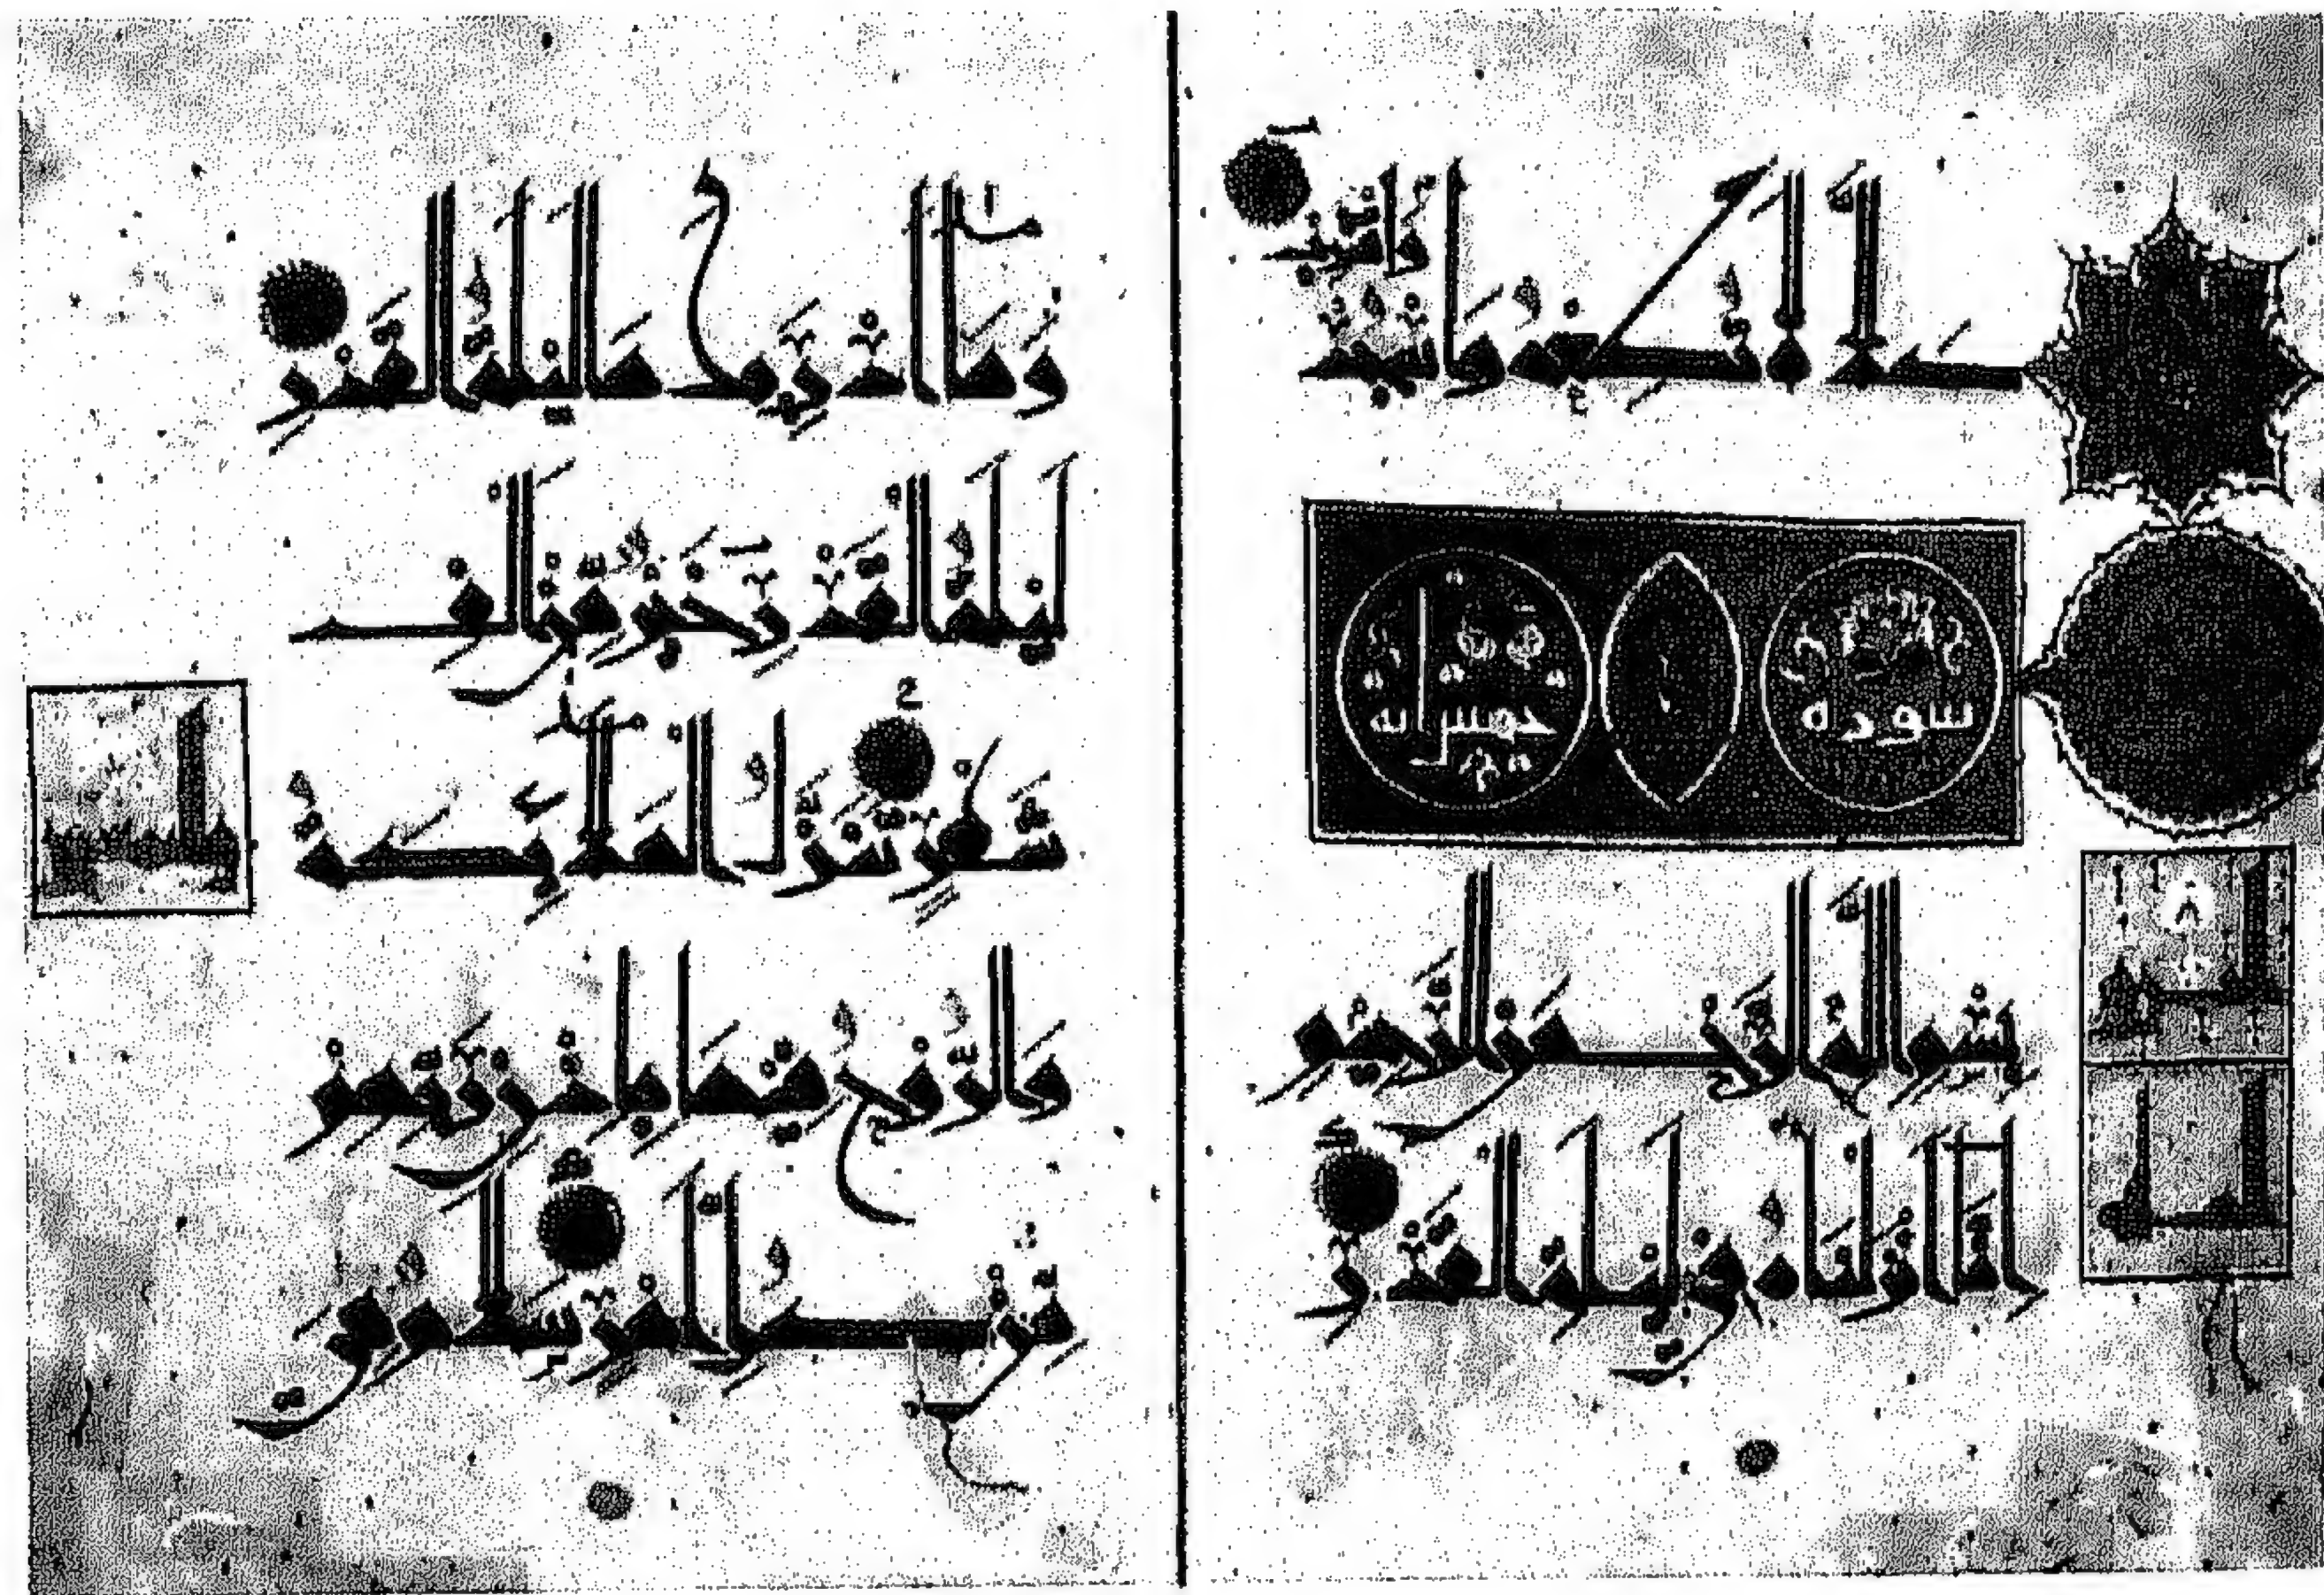 كلا لا تطعه واسجد واقترب
سورة
خمس ايه
بسم الله الرحمن الرحيم
انا انزلناه في ليلة القدر
وما ادريك ما ليلة القدر
ليلة القدر خير من الف
شهر تنزل الملئكة
والروح فيها باذن ربهم
من كل امر سلم هي